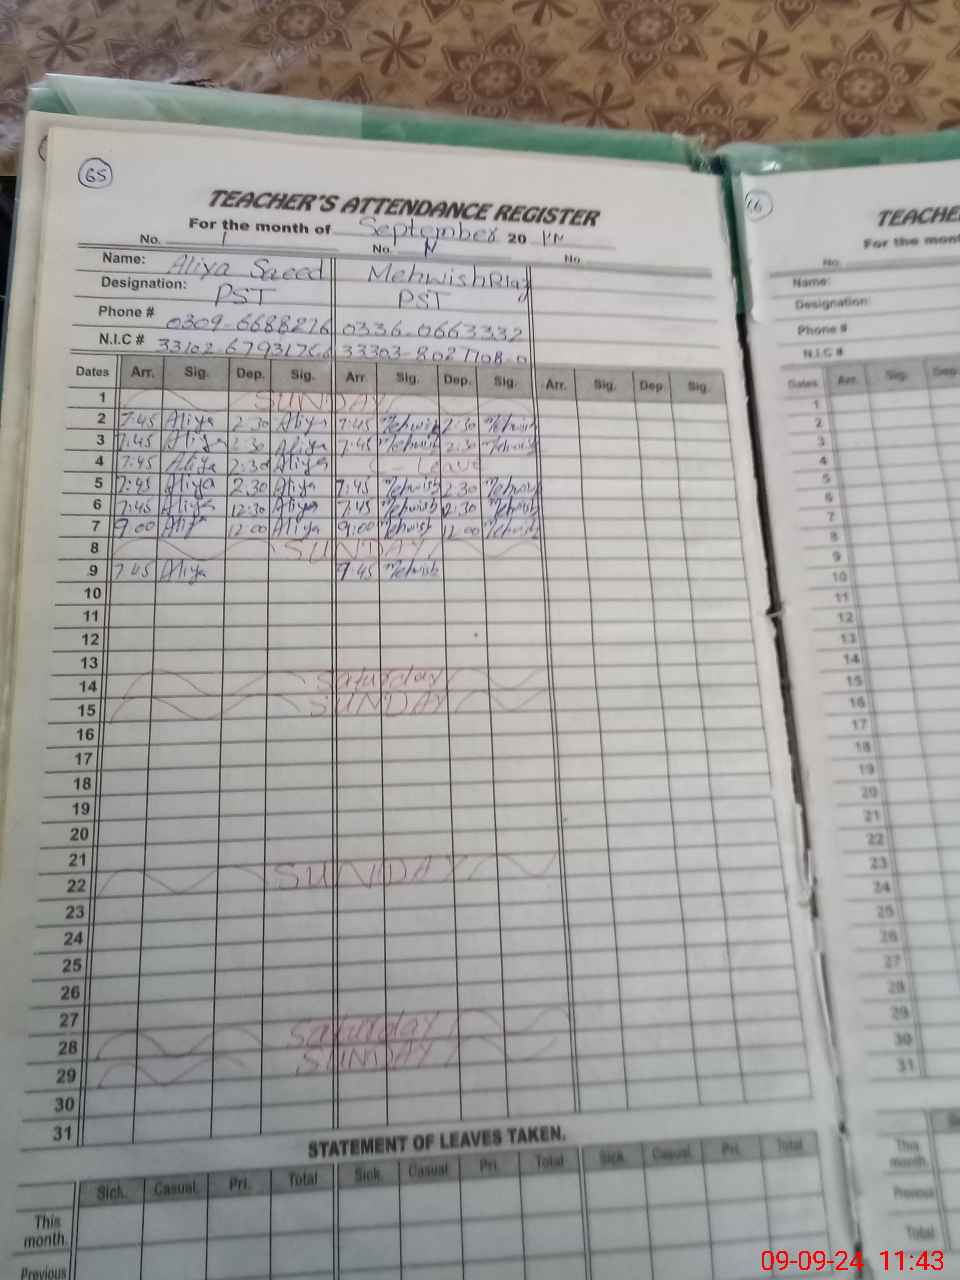 65
TEACHER'S ATTENDANCE REGISTER
For the month of September 20
No. 1 No. No.
Name: Aliya Saeed Mehwish Riaz
Designation: PST PST
Phone # 0309-6688216 0336-0663332
N.I.C # 33102-6793176 33303-8027708-0
Dates Arr. Sig. Dep. Sig. Arr. Sig. Dep. Sig. Arr. Sig. Dep. Sig.
1 SUNDAY
2 7:45 Aliya 2:30 Aliya 7:45 Mehwish 2:30 Mehwish
3 7:45 Aliya 2:30 Aliya 7:45 Mehwish 2:30 Mehwish
4 7:45 Aliya 2:30 Aliya C-Leave
5 7:45 Aliya 2:30 Aliya 7:45 Mehwish 2:30 Mehwish
6 7:45 Aliya 12:30 Aliya 7:45 Mehwish 12:30 Mehwish
7 9:00 Aliya 12:00 Aliya 9:00 Mehwish 12:00 Mehwish
8 SUNDAY
9 7:45 Aliya 7:45 Mehwish
10
11
12
13
14 Saturday
15 SUNDAY
16
17
18
19
20
21
22 SUNDAY
23
24
25
26
27
28 Saturday
29 SUNDAY
30
31
STATEMENT OF LEAVES TAKEN.
Sick. Casual. Pri. Total Sick. Casual. Pri. Total Sick. Casual. Pri. Total
This month.
Previous
16
TEACHE
For the mon
No.
Name:
Designation:
Phone #
N.I.C #
Dates Arr. Sig. Dep
1
2
3
4
5
6
7
8
9
10
11
12
13
14
15
16
17
18
19
20
21
22
23
24
25
26
27
28
29
30
31
This month.
Previous
Total
09-09-24 11:43